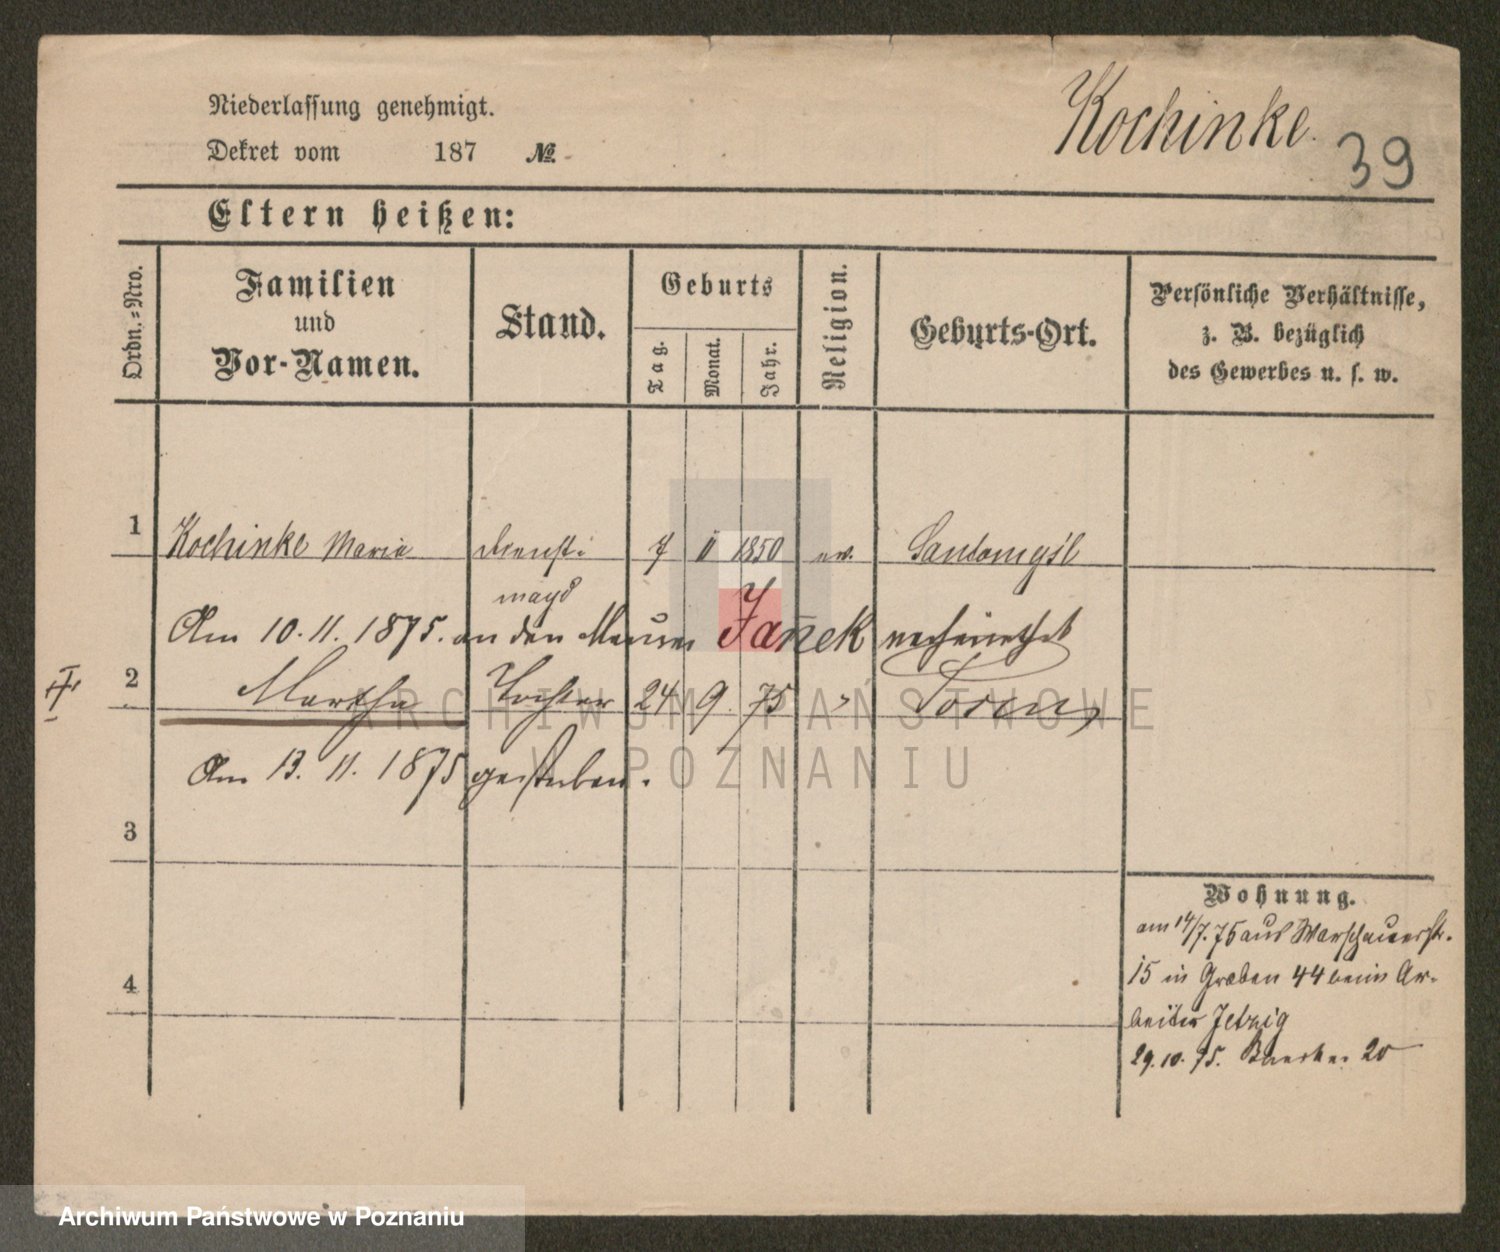 Kochinke.
39
Niederlassung genehmigt.
Dekret vom 187 №
Eltern heißen:
Ordn.=Nro.
Familien und Vor-Namen.
Stand.
Geburts
Tag.
Monat.
Jahr.
Religion.
Geburts-Ort.
Persönliche Verhältnisse,
z. B. bezüglich
des Gewerbes u. s. w.
1 Kochinke Maria Dienst- 7 II 1850 ev. Santomysl
magd
Am 10.11.1875. an den Maurer Janek verheirathet
2 Martha Tochter 24 9. 75 " Posen
Am 13.11.1875 gestorben.
3
4
Wohnung.
am 14/7.75 aus Warschauerstr.
15 in Graben 44 beim Ar-
beiter Jetzig
29.10.75. 20
ARCHIWUM PAŃSTWOWE
W POZNANIU
Archiwum Państwowe w Poznaniu